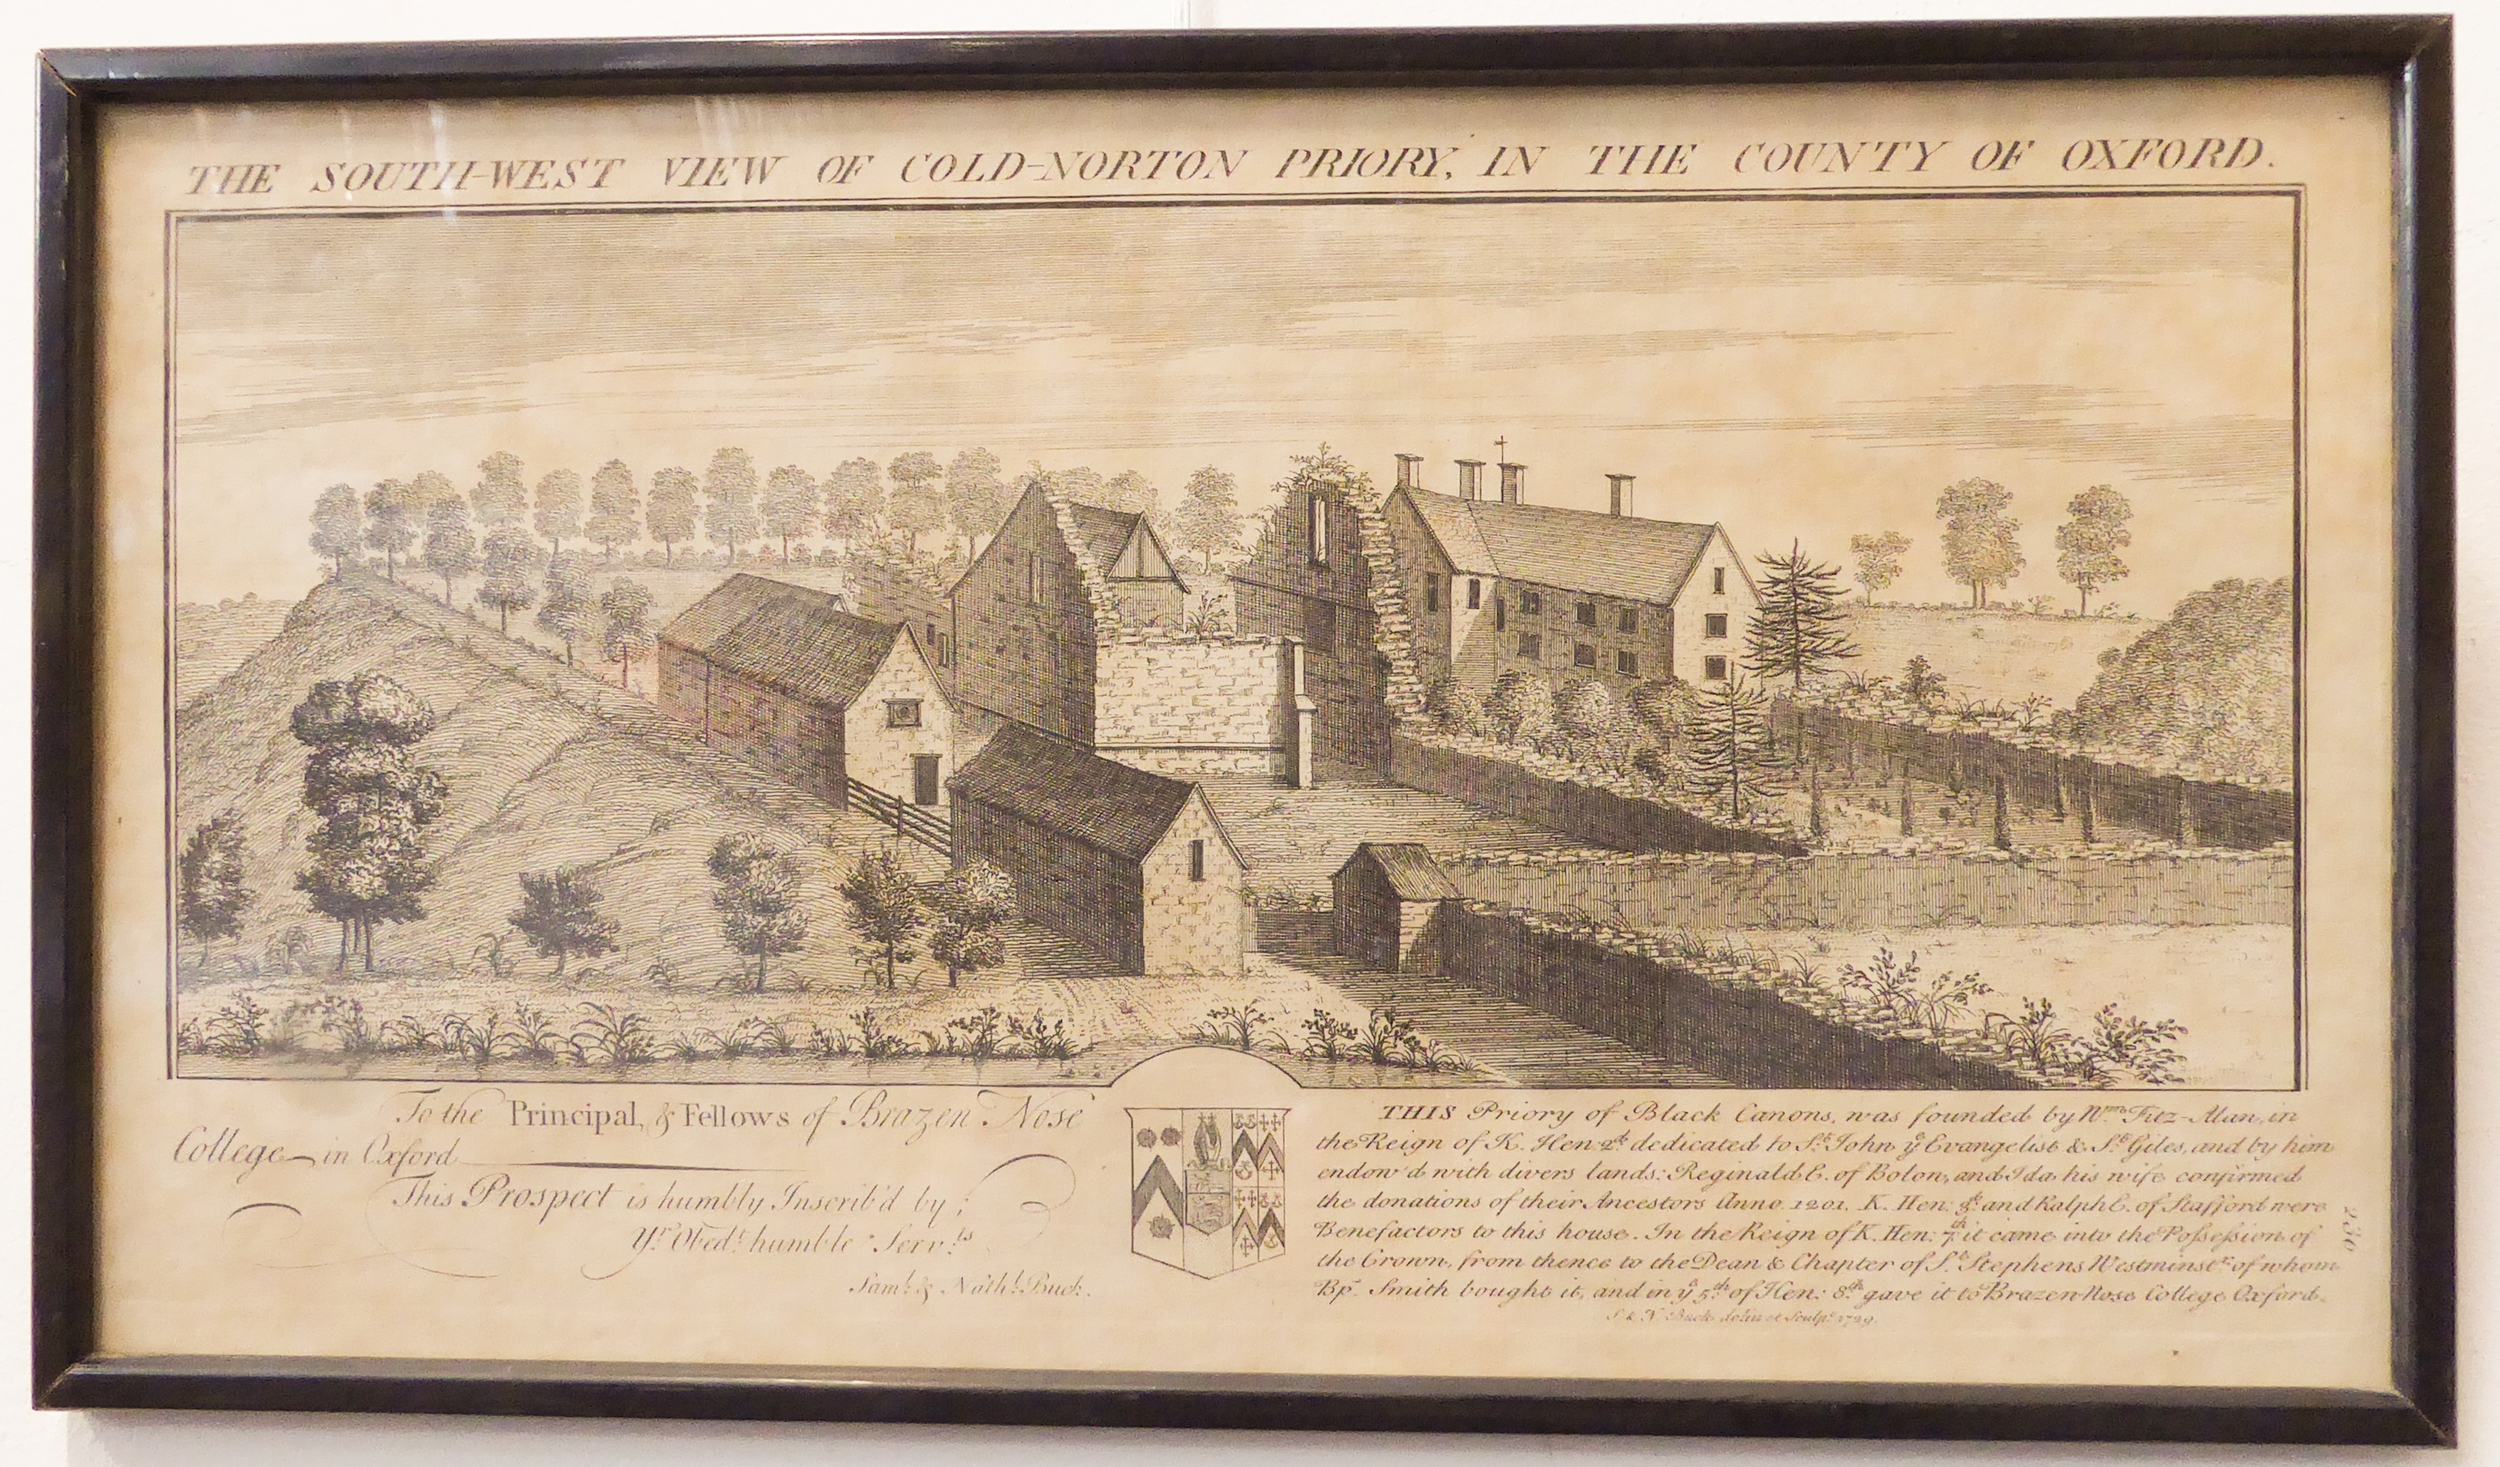 THE SOUTH-WEST VIEW OF COLD-NORTON PRIORY, IN THE COUNTY OF OXFORD.
To the Principal, & Fellows of Brazen Nose
College in Oxford
This Prospect is humbly Inscrib'd by,
Yr. Obedt. humble Servts.
Saml. & Nathl. Buck.
THIS Priory of Black Canons, was founded by Wm. Fitz-Alan, in
the Reign of K. Hen: 2d. dedicated to St. John ye Evangelist & St. Giles, and by him
endow'd with divers lands: Reginald E. of Bolon, and Ida his wife confirmed
the donations of their Ancestors Anno 1201. K. Hen: and Ralph E. of Stafford were
Benefactors to this house. In the Reign of K. Hen: 7th. it came into the Possession of
the Crown, from thence to the Dean & Chapter of St. Stephens Westminstr. of whom
Bp. Smith bought it, and in ye 5th. of Hen: 8th. gave it to Brazen-Nose College Oxford.
S & N Buck delin et Sculpt. 1729.
236